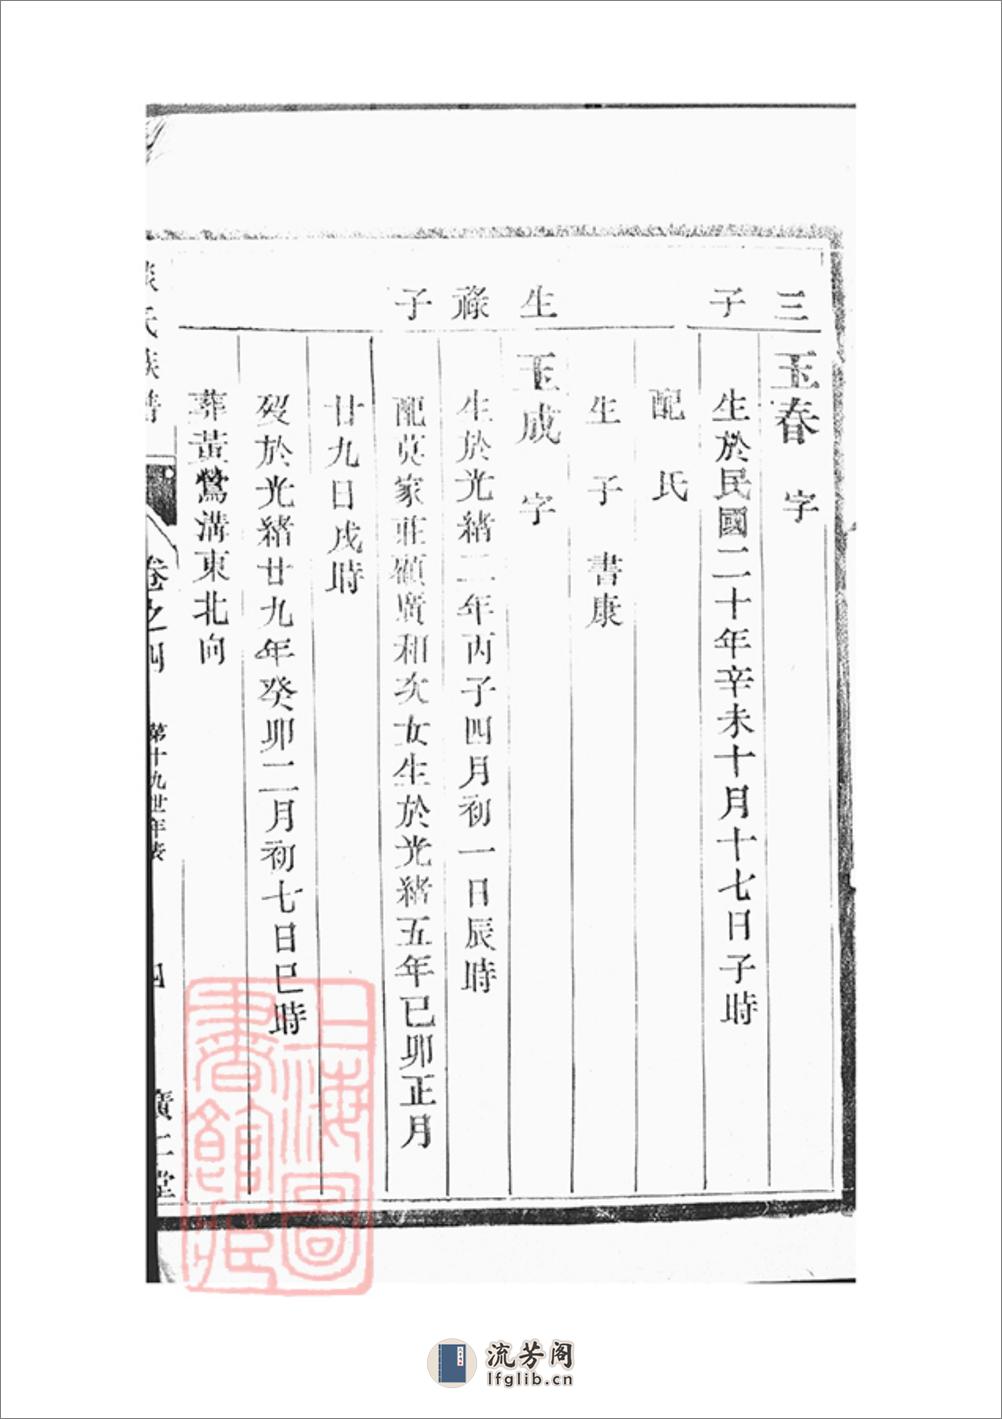 三子
玉春 字
生於民國二十年辛未十月十七日子時
配 氏
生子 書康
生祿子
玉成 字
生於光緒二年丙子四月初一日辰時
配莫家莊顧廣和次女生於光緒五年已卯正月
廿九日戌時
歿於光緒廿九年癸卯二月初七日巳時
葬黃鶯溝東北向
氏族譜
卷之四
第十九世年表
四
廣仁堂
上海圖書館藏
流芳阁
lfglib.cn